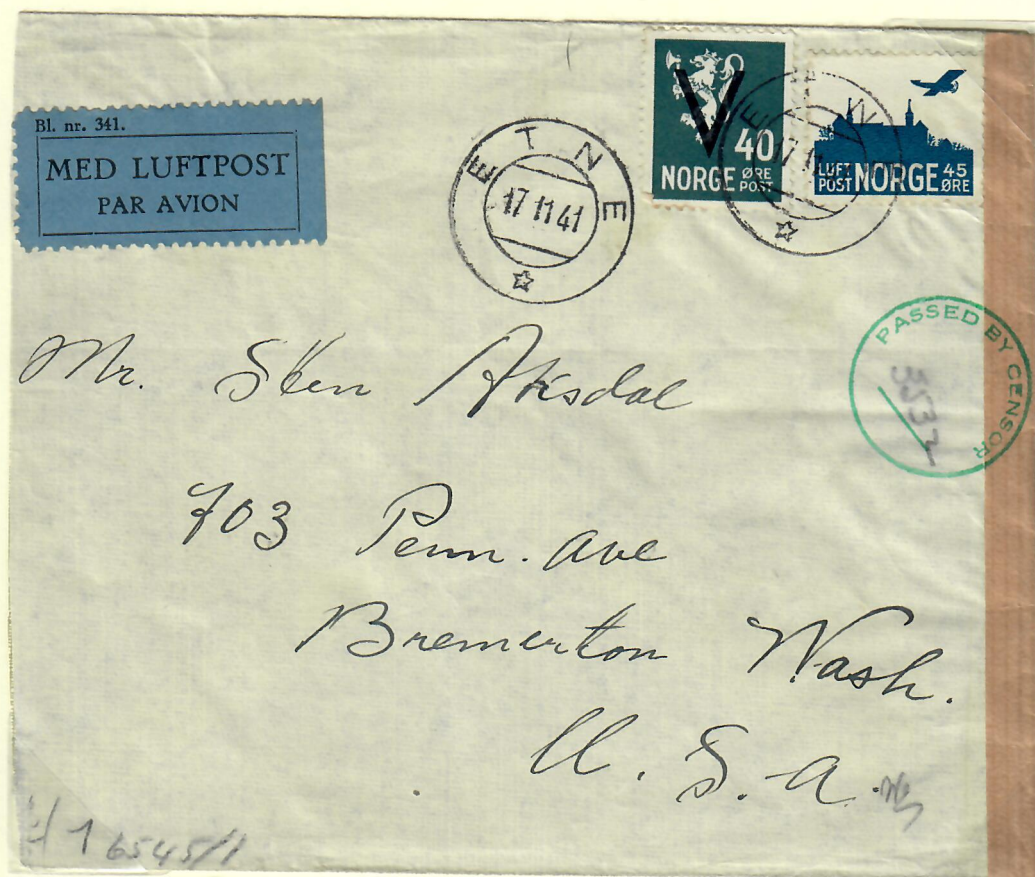 Bl. nr. 341.
MED LUFTPOST
PAR AVION
ETNE
17 11 41
V
40
NORGE ØRE POST
LUFT POST NORGE 45 ØRE
PASSED BY CENSOR
Mr. Sten Aksdal
703 Penn. Ave
Bremerton Wash.
U. S. A.
6545/1